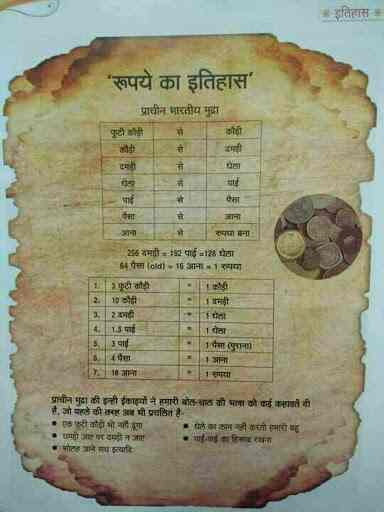 इतिहास
'रूपये का इतिहास'
प्राचीन भारतीय मुद्रा
फूटी कौड़ी से कौड़ी
कौड़ी से दमड़ी
दमड़ी से धेला
धेला से पाई
पाई से पैसा
पैसा से आना
आना से रुपया बना
256 दमड़ी = 192 पाई =128 धेला
64 पैसा (old) = 16 आना = 1 रुपया
1. 3 फूटी कौड़ी = 1 कौड़ी
2. 10 कौड़ी = 1 दमड़ी
3. 2 दमड़ी = 1 धेला
4. 1.5 पाई = 1 धेला
5. 3 पाई = 1 पैसा (पुराना)
6. 4 पैसा = 1 आना
7. 16 आना = 1 रुपया
प्राचीन मुद्रा की इन्हीं इकाइयों ने हमारी बोल-चाल की भाषा को कई कहावतें दी
है, जो पहले की तरह अब भी प्रचलित है-
• एक फूटी कौड़ी भी नहीं दूंगा
• धेले का काम नहीं करती हमारी बहू
• चमड़ी जाए पर दमड़ी न जाए
• पाई-पाई का हिसाब रखना
• सोलह आने सच इत्यादि